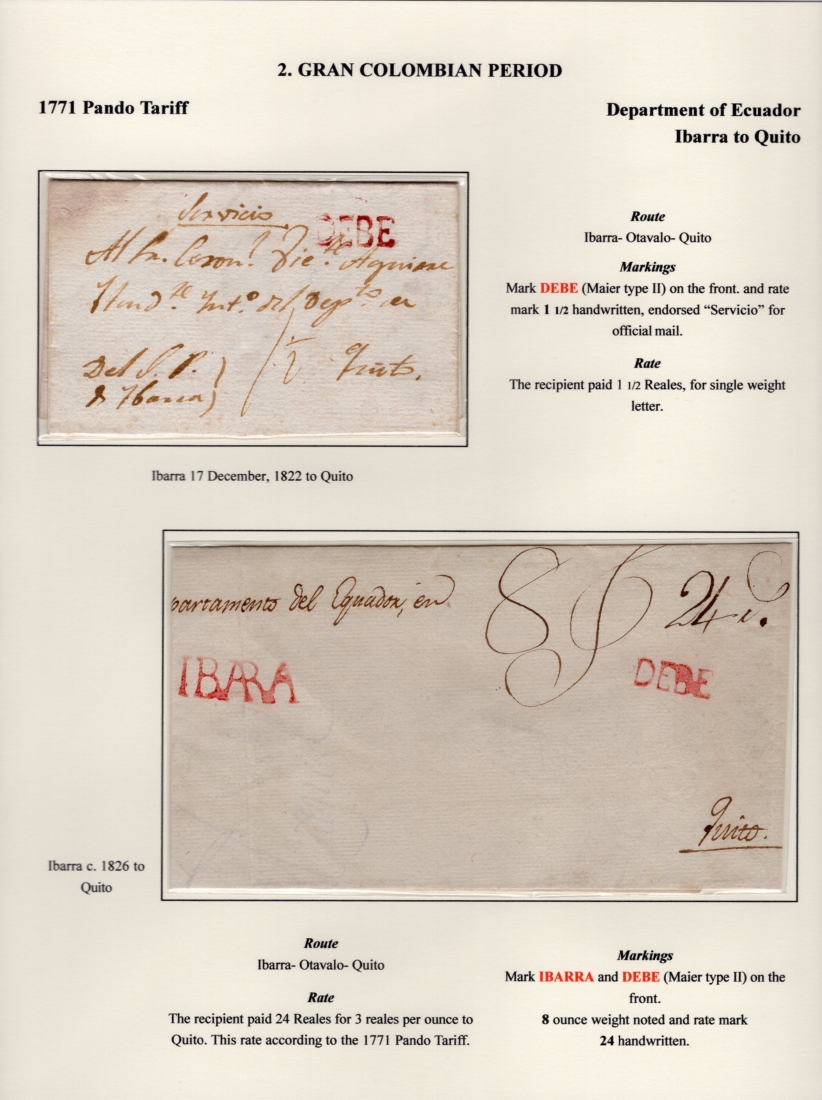 2. GRAN COLOMBIAN PERIOD
1771 Pando Tariff
Department of Ecuador
Ibarra to Quito
Servicio
DEBE
Al Sr. Coron.l Vic.te Aguirre
Yntend.te Int.o del Dep.to en
Del S. P.
de Ibarra
1/2 Quito.
Route
Ibarra- Otavalo- Quito
Markings
Mark DEBE (Maier type II) on the front. and rate
mark 1 1/2 handwritten, endorsed “Servicio” for
official mail.
Rate
The recipient paid 1 1/2 Reales, for single weight
letter.
Ibarra 17 December, 1822 to Quito
partamento del Equador, en
8
24 r.
IBARA
DEBE
Quito.
Ibarra c. 1826 to
Quito
Route
Ibarra- Otavalo- Quito
Rate
The recipient paid 24 Reales for 3 reales per ounce to
Quito. This rate according to the 1771 Pando Tariff.
Markings
Mark IBARRA and DEBE (Maier type II) on the
front.
8 ounce weight noted and rate mark
24 handwritten.